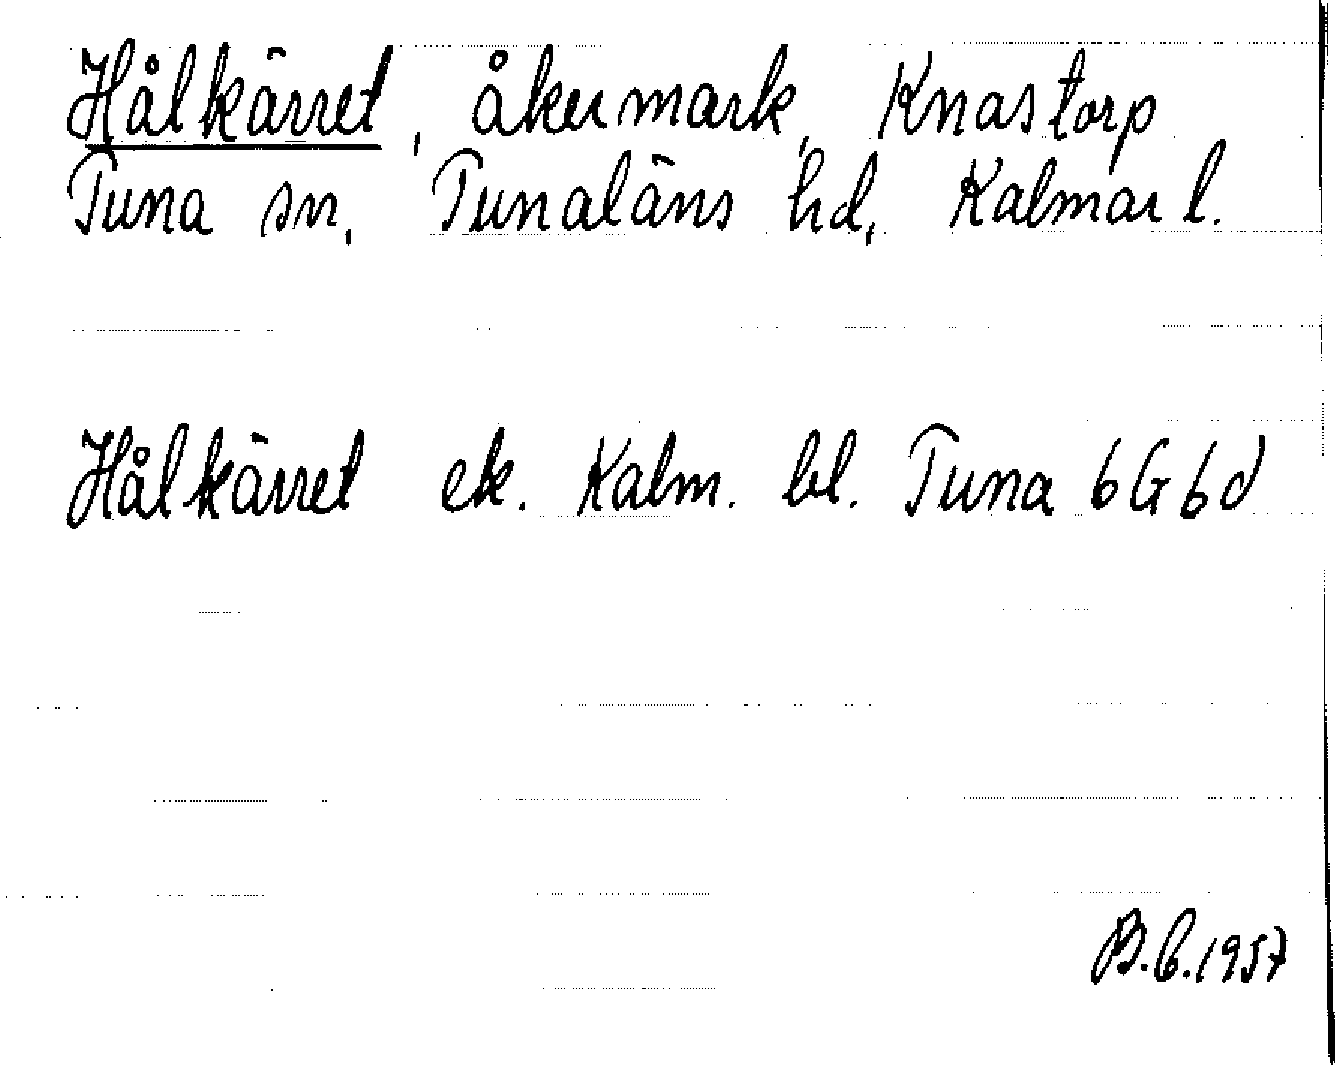 Hålkärret, åkermark, Knastorp
Tuna sn, Tunaläns hd, Kalmar l.
Hålkärret ek. Kalm. bl. Tuna 6G6d
B.C.1957